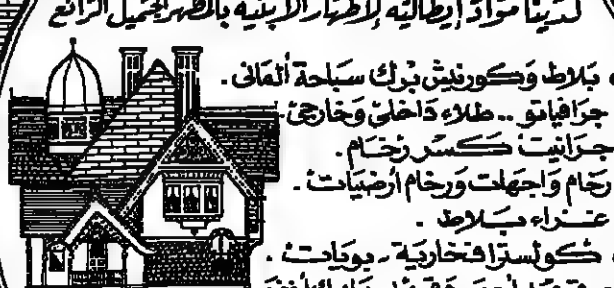 لدينا مواد إيطالية لإظهار الأبنية بالمظهر الجميل الرائع
بلاط وكورنيش برك سباحة ألماني .
جرافياتو .. طلاء داخلي وخارجي
جرانيت كسر رخام .
رخام واجهات ورخام أرضيات .
غراء بلاط .
كولسترا فخارية - بويات .